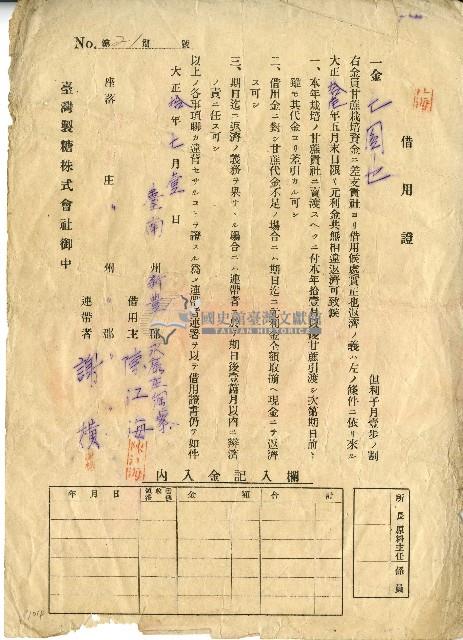 No. 第21頁 號
借用證
一金 仁圓也 但利子月壹步ノ割
右金員甘蔗栽培資金ニ差支貴社ヨリ借用候處實正也返濟ノ義ハ左ノ條件ニ依リ來ル
大正拾壹年五月末日限リ元利金共無相違返濟可致候
一、本年栽培ノ甘蔗貴社ニ賣渡スヘクニ付本年拾壹月以後甘蔗引渡シ次第期日前ト
雖モ其代金ヨリ差引カル可シ
二、借用金ニ對シ甘蔗代金不足ノ場合ニハ期日迄ニ元利金全額取揃ヘ現金ニテ返濟
ス可シ
三、期日迄ニ返濟ノ義務ヲ果サヽル場合ニハ連帶者ニ於テ期日後壹箇月以內ニ辨濟
ノ責ニ任ス可シ
以上ノ各事項聯カ違背セサルコトヲ證スル爲メ連帶者連署ヲ以テ借用證書仍テ如件
大正拾年七月壹日
臺南州新豐郡永寧庄
借用主 陳江海
座落 庄 州 郡
連帶者 謝橫
臺灣製糖株式會社御中
國史館臺灣文獻館
TAIWAN HISTORICA
內入金記入欄
年 月 日
金額
合計
所長
原料主任
係員